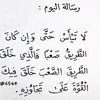 رسالة اليوم :
لا تيأس حتى وإن كان
الطريق صعبا فالذي خلق
الطريق الصعب خلق فيك
القوة على تجاوزه.